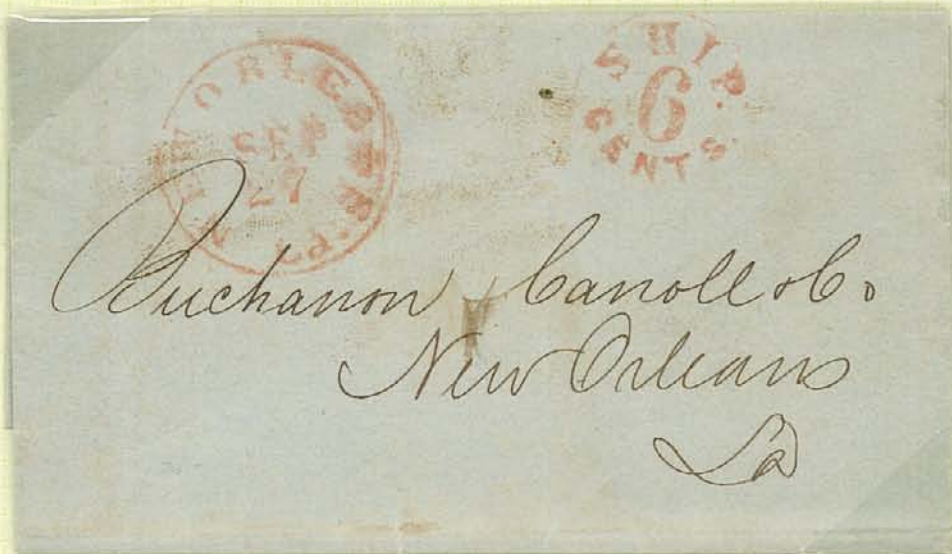 NEW ORLEANS La
SEP
27
SHIP
6
CENTS
Buchanon, Carroll & Co.
New Orleans
La